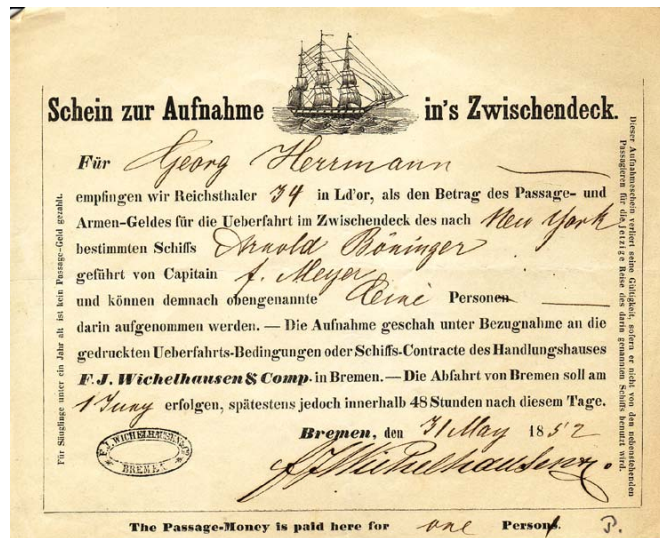 Schein zur Aufnahme in's Zwischendeck.
Für Georg Herrmann
empfingen wir Reichsthaler 34 in Ld'or, als den Betrag des Passage- und
Armen-Geldes für die Ueberfahrt im Zwischendeck des nach New York
bestimmten Schiffs Arnold Böninger
geführt von Capitain f. Meyer
und können demnach obengenannte Eine Personen
darin aufgenommen werden. — Die Aufnahme geschah unter Bezugnahme an die
gedruckten Ueberfahrts-Bedingungen oder Schiffs-Contracte des Handlungshauses
F. J. Wichelhausen & Comp. in Bremen. — Die Abfahrt von Bremen soll am
1 Juny erfolgen, spätestens jedoch innerhalb 48 Stunden nach diesem Tage.
Bremen, den 31 May 1852
F J Wichelhausen
F. J. WICHELHAUSEN & Co
BREMEN
The Passage-Money is paid here for one Persons. P.
Für Säuglinge unter ein Jahr alt ist kein Passage-Geld gezahlt.
Dieser Aufnahmeschein verliert seine Gültigkeit, sofern er nicht von den nebenstehenden
Passagieren für die jetzige Reise des darin genannten Schiffs benutzt wird.